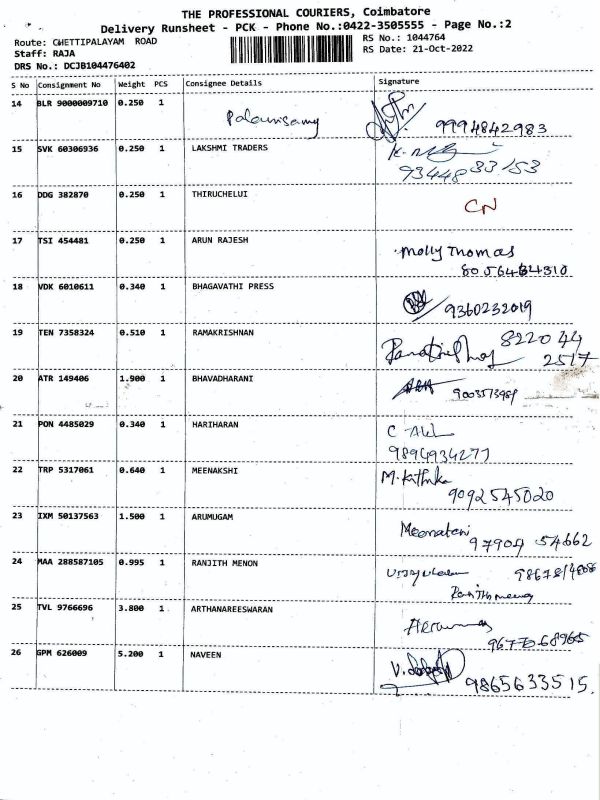 THE PROFESSIONAL COURIERS, Coimbatore
Delivery Runsheet - PCK - Phone No.:0422-3505555 - Page No.:2
Route: CHETTIPALAYAM ROAD
RS No.: 1044764
Staff: RAJA
RS Date: 21-Oct-2022
DRS No.: DCJB104476402
S No Consignment No Weight PCS Consignee Details Signature
14 BLR 9000009710 0.250 1 Palanisamy 9994842983
15 SVK 60306936 0.250 1 LAKSHMI TRADERS
9344833153
16 DDG 382870 0.250 1 THIRUCHELUI CN
17 TSI 454481 0.250 1 ARUN RAJESH Molly Thomas
18 VDK 6010611 0.340 1 BHAGAVATHI PRESS
9360232019
19 TEN 7358324 0.510 1 RAMAKRISHNAN 822044
2517
20 ATR 149406 1.900 1 BHAVADHARANI
21 PON 4485029 0.340 1 HARIHARAN
9894934277
22 TRP 5317061 0.640 1 MEENAKSHI M.
9092545020
23 IXM 50137563 1.500 1 ARUMUGAM
97904 54662
24 MAA 288587105 0.995 1 RANJITH MENON
25 TVL 9766696 3.800 1 ARTHANAREESWARAN
26 GPM 626009 5.200 1 NAVEEN
9865633515.